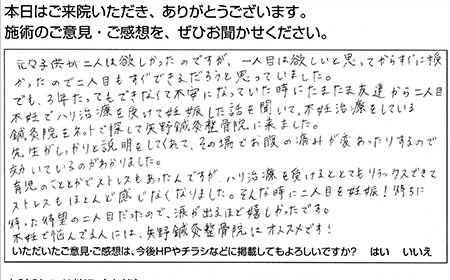 本日はご来院いただき、ありがとうございます。
施術のご意見・ご感想を、ぜひお聞かせください。
元々子供が二人は欲しかったのですが、一人目は欲しいと思ってからすぐに授
かったので二人目もすぐできるだろうと思っていました。
でも、3年たってもできなくて不安になっていた時にたまたま友達から二人目
不妊でハリ治療を受けて妊娠した話を聞いて、不妊治療をしている
鍼灸院をネットで探して矢野鍼灸整骨院に来ました。
先生がしっかりと説明をしてくれて、その場でお腹の痛みが変わったりするので
効いているのがわかりました。
育児のこととかでストレスもあったんですが、ハリ治療を受けるととてもリラックスできて
ストレスもほとんど感じなくなりました。そんな時に二人目を妊娠!待ちに
待った待望の二人目だったので、涙が出るほど嬉しかったです。
不妊で悩んでる人には、矢野鍼灸整骨院はオススメです!
いただいたご意見・ご感想は、今後HPやチラシなどに掲載してもよろしいですか? はい いいえ